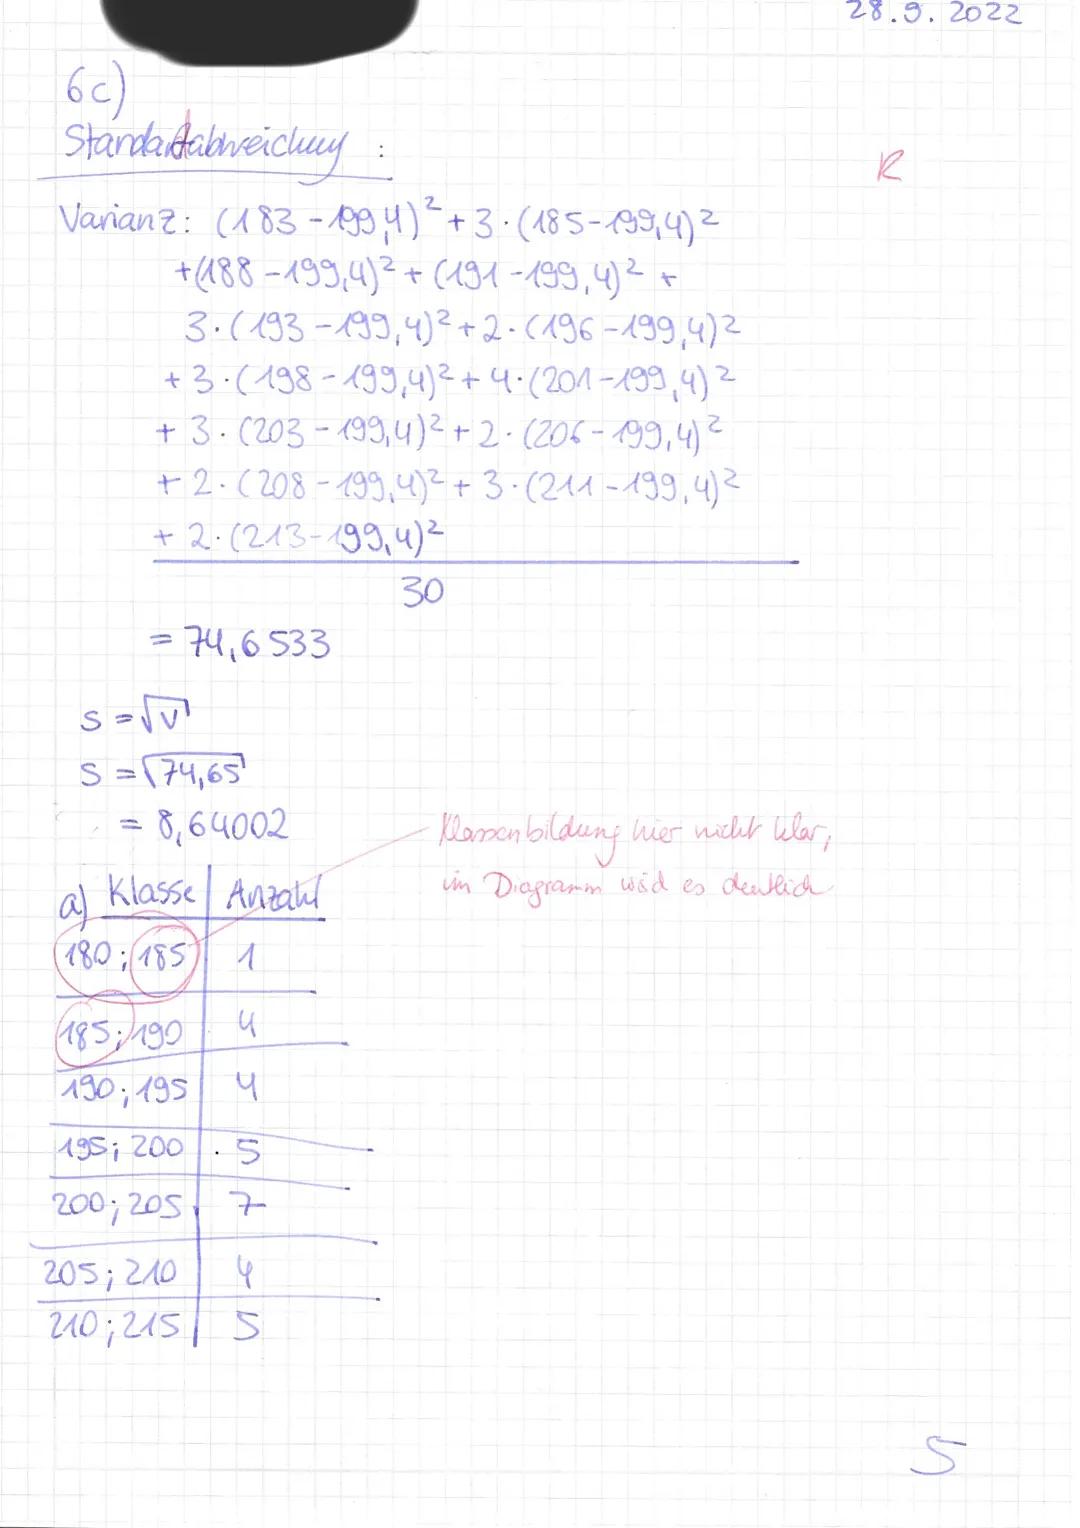 28.9.2022
6c)
Standardabweichung :
R
Varianz: (183-199,4)² + 3·(185-199,4)²
+(188-199,4)² + (191-199,4)² +
3·(193-199,4)² + 2·(196-199,4)²
+ 3·(198-199,4)² + 4·(201-199,4)²
+ 3·(203-199,4)² + 2·(206-199,4)²
+ 2·(208-199,4)² + 3·(211-199,4)²
+ 2·(213-199,4)²
30
= 74,6533
s = √v
s = √74,65
= 8,64002
Klassenbildung hier nicht klar,
im Diagramm wird es deutlich
a) Klasse | Anzahl
180; 185 | 1
185; 190 | 4
190; 195 | 4
195; 200 | 5
200; 205 | 7
205; 210 | 4
210; 215 | 5
5